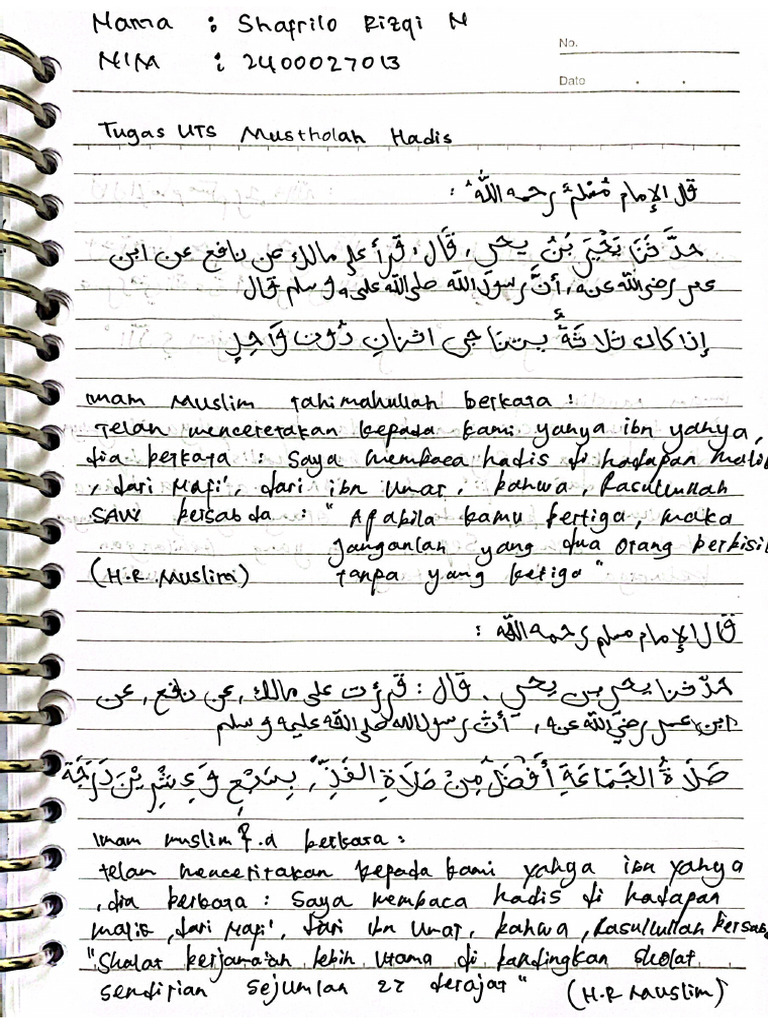 Nama : Shafrilo Rizqi N
NIM : 2400027013
No.
Date
Tugas UTS Mustholah Hadis
قال الإمام مُسْلِمٌ رحمه اللّٰهُ :
حدَّثَنَا يَحْيَى بَنْ يحيى، قَالَ: قرأ على مالك عن نافع عن ابن
عمر رضي الله عنه، أنَّ رسولَ الله صلى الله عليه وسلم قال
إذا كان ثلاثَةٌ يتناجى اثنانِ دُونَ وَاحِدٍ
Imam Muslim rahimahullah berkata :
Telah menceretakan kepada kami yahya ibn yahya,
dia berkata : Saya membaca hadis di hadapan Malik
, dari Nafi', dari ibn Umar, bahwa, Rasulullah
SAW bersabda : " Apabila kamu bertiga, maka
janganlah yang dua orang berbisi
(H.R. Muslim) tanpa yang ketiga "
قال الإمام مسلم رحمه الله :
حدّثنا يحيى بن يحيى، قال: قرأت على مالك، عن نافع، عن
ابن عمر رضي الله عنه، أنّ رسول الله صلى الله عليه وسلم
صَلَاةُ الجَمَاعَةِ أَفْضَلُ مِنْ صَلَاةِ الفَذِّ، بِسَبْعٍ وَعِشْرِيْنَ دَرَجَةً
Imam muslim R.a berkata :
telah menceritakan kepada kami yahya ibn yahya
, dia berkata : Saya membaca hadis di hadapan
malik, dari Nafi', dari ibn Umar, bahwa, Rasullullah bersab
"Sholat berjamaah lebih utama di bandingkan sholat
sendirian sejumlah 27 derajat" (H.R Muslim)